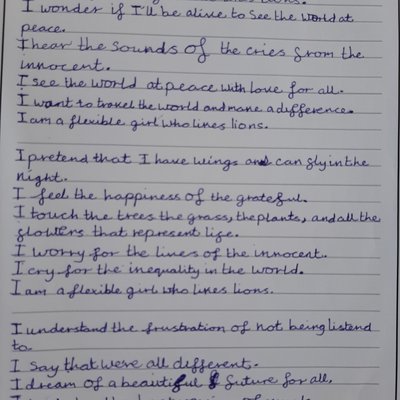 I wonder if I'll be alive to see the world at
peace.
I hear the sounds of the cries from the
innocent.
I see the world at peace with love for all.
I want to travel the world and make a difference.
I am a flexible girl who likes lions.
I pretend that I have wings and can fly in the
night.
I feel the happiness of the grateful.
I touch the trees the grass, the plants, and all the
flowers that represent life.
I worry for the lives of the innocent.
I cry for the inequality in the world.
I am a flexible girl who likes lions.
I understand the frustration of not being listend
to
I say that were all different.
I dream of a beautiful future for all.